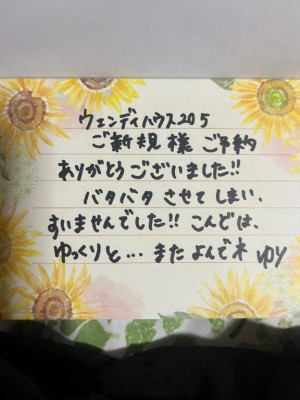 ウェンディハウス205
ご新規様 ご予約
ありがとうございました!!
バタバタ させてしまい、
すいませんでした!! こんどは、
ゆっくりと… またよんでネ ゆり